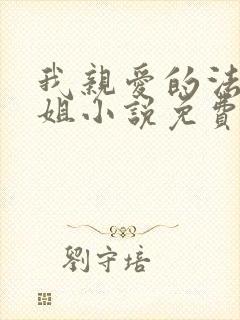 我親愛的法
姐小說免費
劉守培